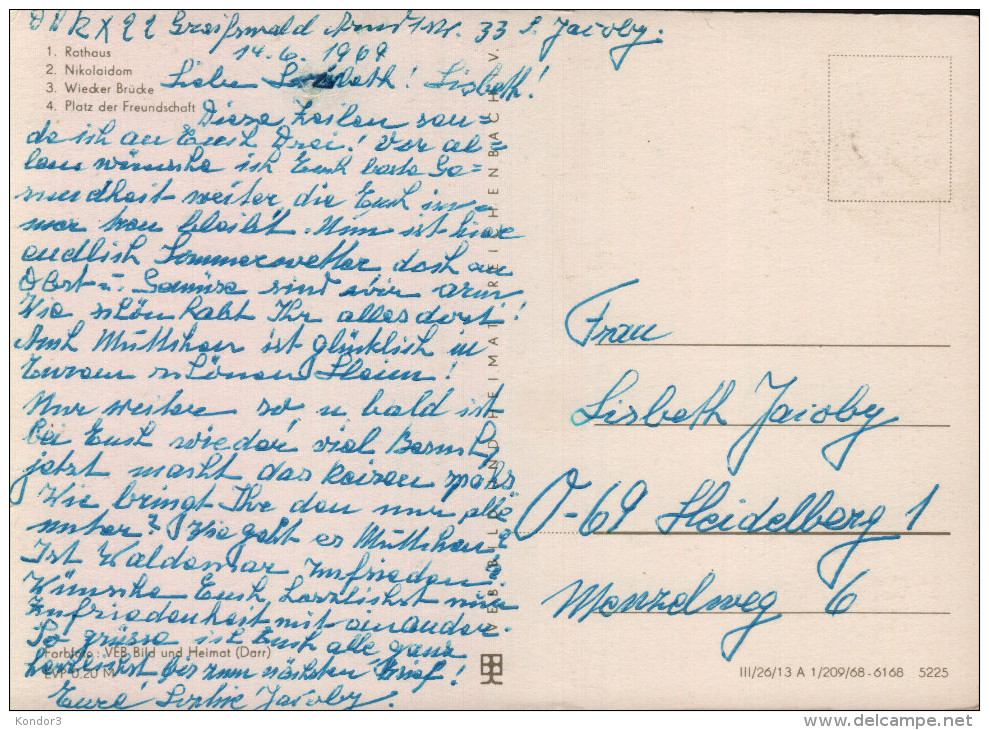 Greifswald Arndtstr. 33 S. Jacoby.
14.6.1969
1. Rathaus
2. Nikolaidom
3. Wiecker Brücke
4. Platz der Freundschaft
Liebe Lisbeth! Lisbeth!
Diese Zeilen sen=
de ich an Euch Drei! Vor al=
lem wünsche ich Euch beste Ge=
sundheit weiter, die Euch im=
mer treu bleibt. Nun ist hier
endlich Sommerwetter, doch an
Obst u. Gemüse sind wir arm
Wie schön habt Ihr alles dort!
Auch Muttchen ist glücklich in
Eurem schönen Heim!
Nur weiter so, u. bald ist
bei Euch wieder viel Besuch,
jetzt macht das Reisen Spaß
Wie bringt Ihr den nur alle
unter? Wie geht es Muttchen?
Ist Waldemar zufrieden?
Wünsche Euch herzlichst nur
Zufriedenheit mit einander.
So grüsse ich Euch alle ganz
herzlichst bis zum nächsten Brief!
Eure Sophie Jacoby.
Farbfoto: VEB Bild und Heimat (Darr)
EVP 0,20 M
VEB BILD UND HEIMAT REICHENBACH I. V.
Frau
Lisbeth Jacoby
D-69 Heidelberg 1
Menzelweg 6
III/26/13 A 1/209/68-6168 5225
Kondor3
delcampe.net